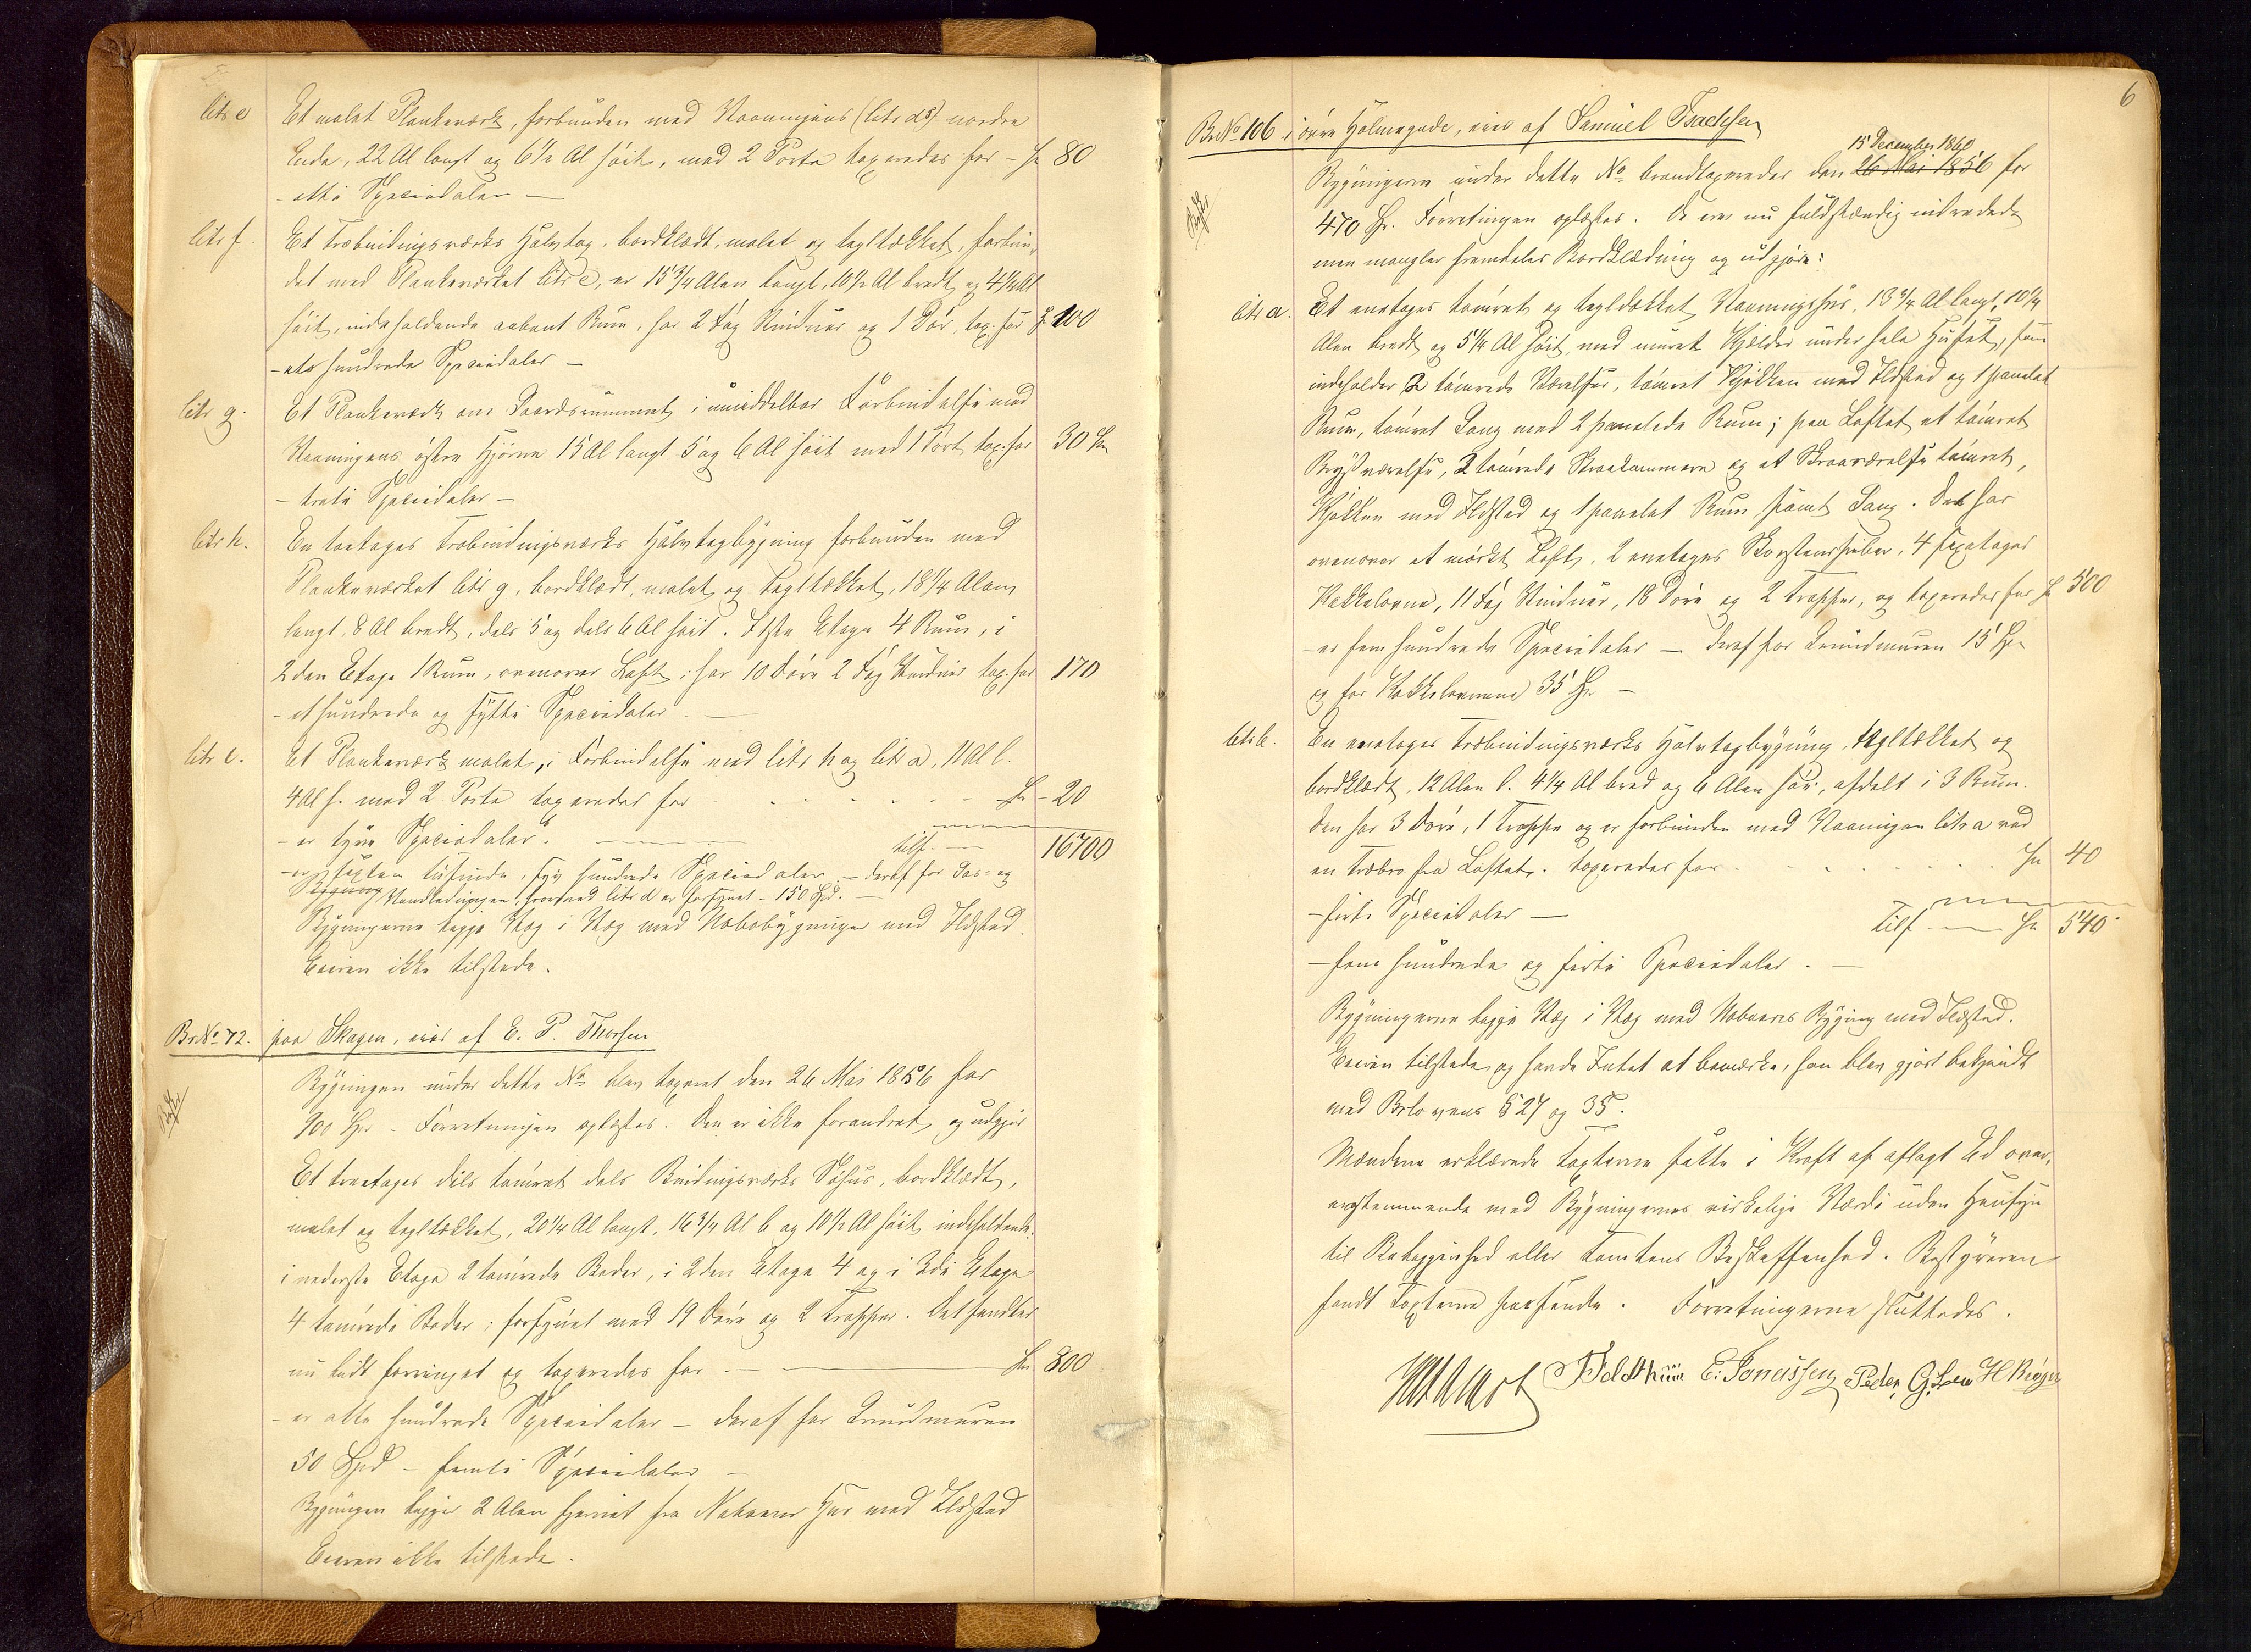 litr e Et malet Plankeværk, forbunden med Vaaningens (litr d5) nordre
Ende, 22 Al langt og 6½ Al høit, med 2 Porte taxeredes for - Sp 80
- otti Speciedaler -
litr f. Et Træbindingsværks Halvtag, bordklædt, malet og tegltækket, forbun-
det med Plankeværket litr e, er 15¾ Alen langt, 10½ Al bredt og 4¼ Al
høit, indeholdende aabent Rum, har 2 Fag Vinduer og 1 Dör, tax. for Sp 100
- et hundrede Speciedaler -
litr g. Et Plankeværk om Gaardsrummet i umiddelbar Forbindelse med
Vaaningens østre Hjörne 15 Al langt 5 og 6 Al høit med 1 Port, tax. for 30 Sp
- treti Speciedaler -
litr h. En toetages Træbindingsværks Halvtagbygning forbunden med
Plankeværket litr g, bordklædt, malet og tegltækket, 18¼ Alen
langt, 8 Al bredt, dels 5 og dels 6 Al høit. I 1ste Etage 4 Rum, i
2den Etage 1 Rum, ovenover Loft; har 10 Döre 2 Fag Vinduer tax. for 170
- et hundrede og sytti Speciedaler -
litr i. Et Plankeværk malet, i Forbindelse med litr h og litr a, 11 Al l.
4 Al h. med 2 Porte taxeredes for Sp - 20
- er tyve Speciedaler. tilf. 16700
- er sexten tusinde, syv hundrede Speciedaler - deraf for Gas- og
Vandledningen, hvormed litr d er forsynet - 150 Spd. -
Bygningerne ligge Væg i Væg med Nabobygninger med Ildsted.
Eieren ikke tilstede.
Br. No 72. paa Skagen, eies af E. P. Thorsen
Bygningen under dette No blev taxeret den 26 Mai 1856 for
900 Spd - Forretningen oplæstes. Den er ikke forandret, og udgjör
Et treetages dels tömret dels Bindingsværks Söhus, bordklædt,
malet og tegltækket, 20¼ Al langt, 16¾ Al b og 10½ Al høit, indeholdende
i nederste Etage 2 tömrede Boder, i 2den Etage 4 og i 3die Etage
4 tömrede Boder; forsynet med 19 Döre og 2 Trapper. Det fandtes
nu lidt forringet og taxeredes for - Sp 800
- er otte hundrede Speciedaler - deraf for Grundmuren
50 Spd - femti Speciedaler -
Bygningen ligger 2 Alen fjernet fra Naboens Hus med Ildsted
Eieren ikke tilstede.
6
Br No 106 i övre Holmegade, eies af Samuel Isachsen
15 December 1860
Bygningerne under dette No brandtaxeredes den 26 Mai 1856 for
470 Sp. Forretningen oplæstes. De ere nu fuldstændig indredede
men mangler fremdeles Bordklædning og udgjöre:
litr a. Et enetages tömret og tegltækket Vaaningshus, 13¾ Al langt, 10¼
Alen bredt og 5¼ Al høit, med muret Kjelder under hele Huset, som
indeholder 2 tömrede Værelser, tömret Kjökken med Ildsted og 1 panelet
Rum, tömret Gang med 2 panelede Rum; paa Loftet et tömret
Brystværelse, 2 tömrede Skraakammere og et Skraaværelse tömret,
Kjökken med Ildsted og 1 panelet Rum samt Gang. Det har
ovenover et mörkt Loft, 2 enetages Skorstenspiber, 4 sexetages
Kakkelovne, 11 Fag Vinduer, 18 Döre og 2 Trapper, og taxeredes for Sp 500
- er fem hundrede Speciedaler - deraf for Grundmuren 15 Sp
og for Kakkelovnene 35 Sp. -
litr b. En enetages Træbindingsværks Halvtagbygning, tegltækket og
bordklædt, 12 Alen l. 4¼ Al bred og 6 Alen höi, afdelt i 3 Rum.
Den har 3 Döre, 1 Trappe og er forbunden med Vaaningen litr a ved
en Træbro fra Loftet. taxeredes for Sp 40
- förti Speciedaler -
Tilf - Sp 540
- fem hundrede og förti Speciedaler. -
Bygningerne ligge Væg i Væg med Naboers Bygning med Ildsted.
Eieren tilstede og havde Intet at bemærke, han blev gjort bekjendt
med Brlovens § 27 og 35.
Mændene erklærede Taxterne satte i Kraft af aflagt Ed over-
ensstemmende med Bygningernes virkelige Værdi uden Hensyn
til Beliggenhed eller Tomtens Beskaffenhed. Bestyreren
fandt Taxterne passende. Forretningerne sluttedes.
Feldthuu E. Tonnissen Peder